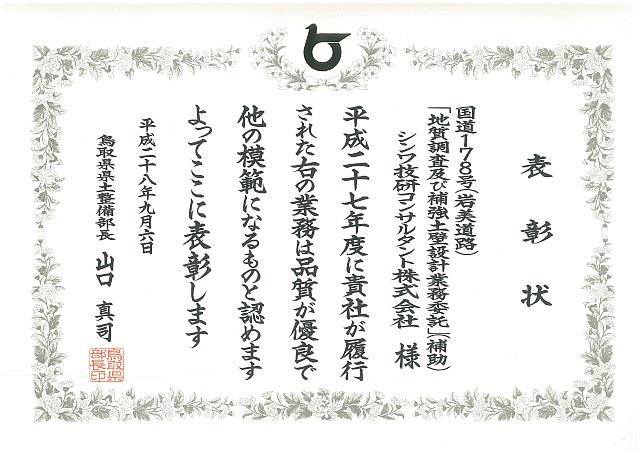 表彰状
国道178号(岩美道路)
「地質調査及び補強土壁設計業務委託」(補助)
シンワ技研コンサルタント株式会社 様
平成二十七年度に貴社が履行
された右の業務は品質が優良で
他の模範になるものと認めます
よってここに表彰します
平成二十八年九月六日
鳥取県県土整備部長 山口 真司
鳥取県
部長印